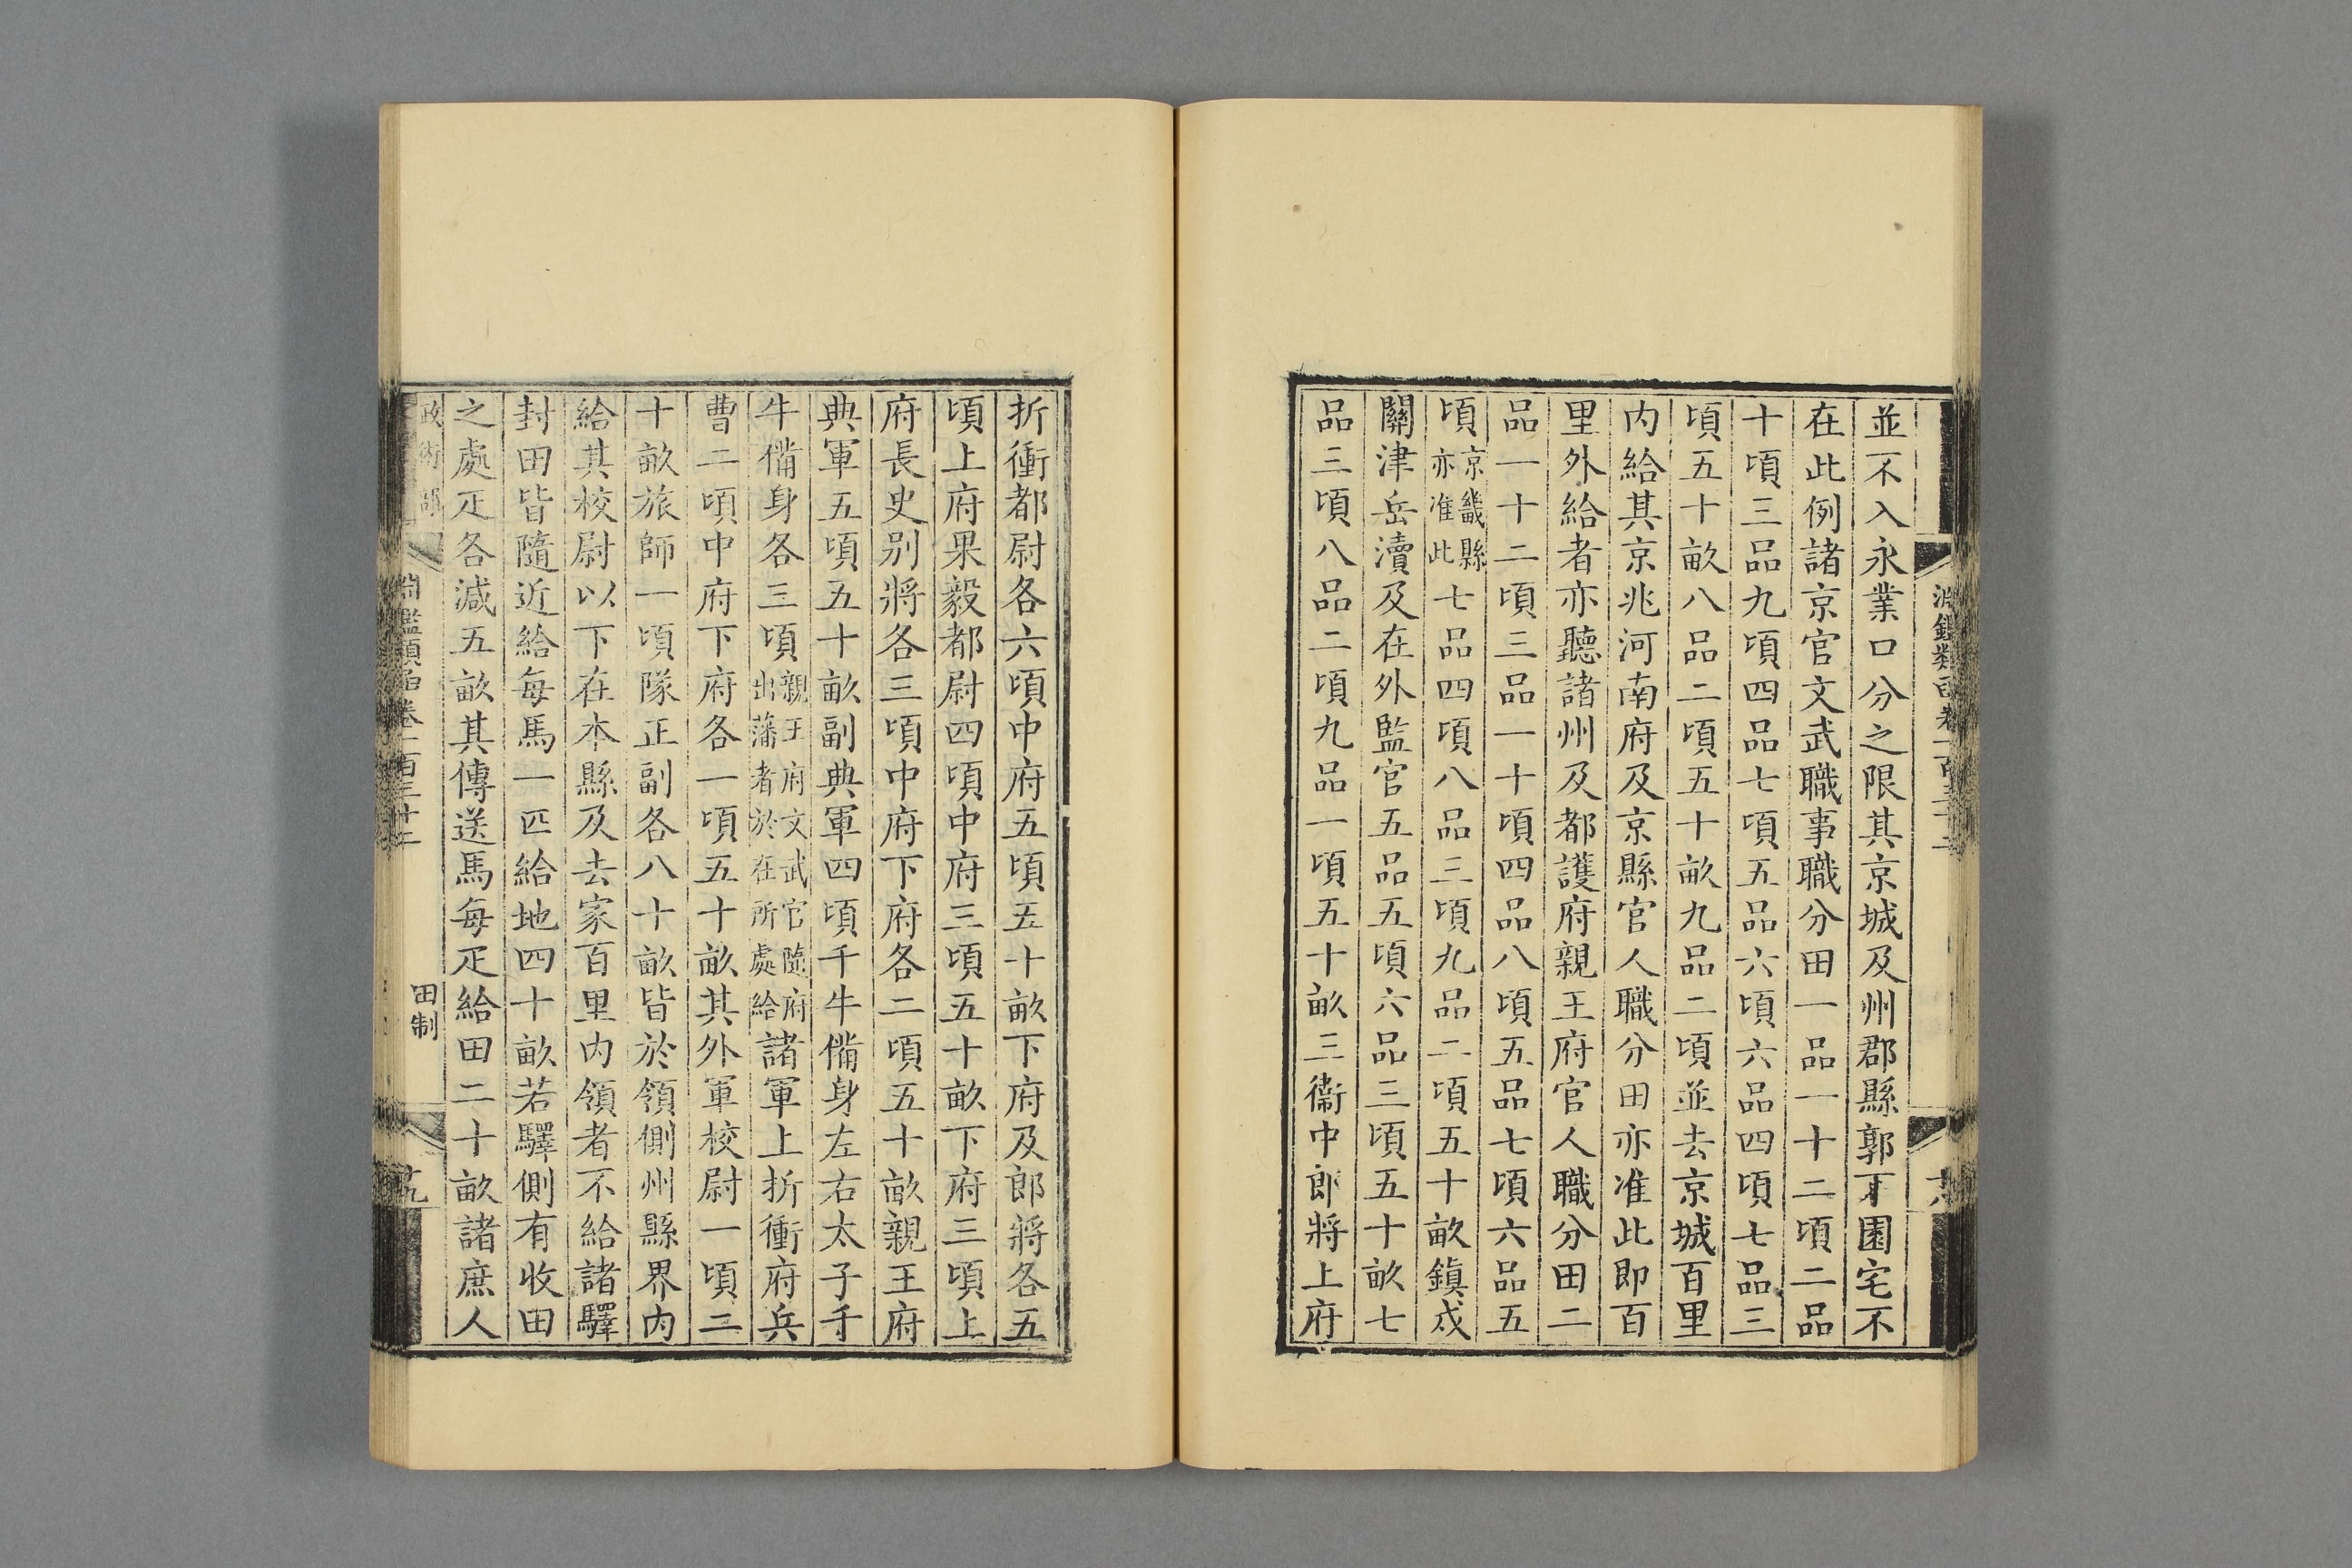 並不入永業口分之限其京城及州郡縣郭下園宅不
在此例諸京官文武職事職分田一品一十二頃二品
十頃三品九頃四品七頃五品六頃六品四頃七品三
頃五十畝八品二頃五十畝九品二頃並去京城百里
内給其京兆河南府及京縣官人職分田亦准此即百
里外給者亦聽諸州及都護府親王府官人職分田二
品一十二頃三品一十頃四品八頃五品七頃六品五
頃京畿縣亦准此七品四頃八品三頃九品二頃五十畝鎭戍
關津岳瀆及在外監官五品五頃六品三頃五十畝七
品三頃八品二頃九品一頃五十畝三衞中郎將上府
折衝都尉各六頃中府五頃五十畝下府及郎將各五
頃上府果毅都尉四頃中府三頃五十畝下府三頃上
府長史别將各三頃中府下府各二頃五十畝親王府
典軍五頃五十畝副典軍四頃千牛備身左右太子千
牛備身各三頃親王府文武官隨府出藩者於在所處給諸軍上折衝府兵
曹二頃中府下府各一頃五十畝其外軍校尉一頃二
十畝旅師一頃隊正副各八十畝皆於領側州縣界内
給其校尉以下在本縣及去家百里内領者不給諸驛
封田皆隨近給每馬一匹給地四十畝若驛側有收田
之處疋各減五畝其傳送馬每疋給田二十畝諸庶人
政術部
淵鑑類函卷一百三十二
田制
十九